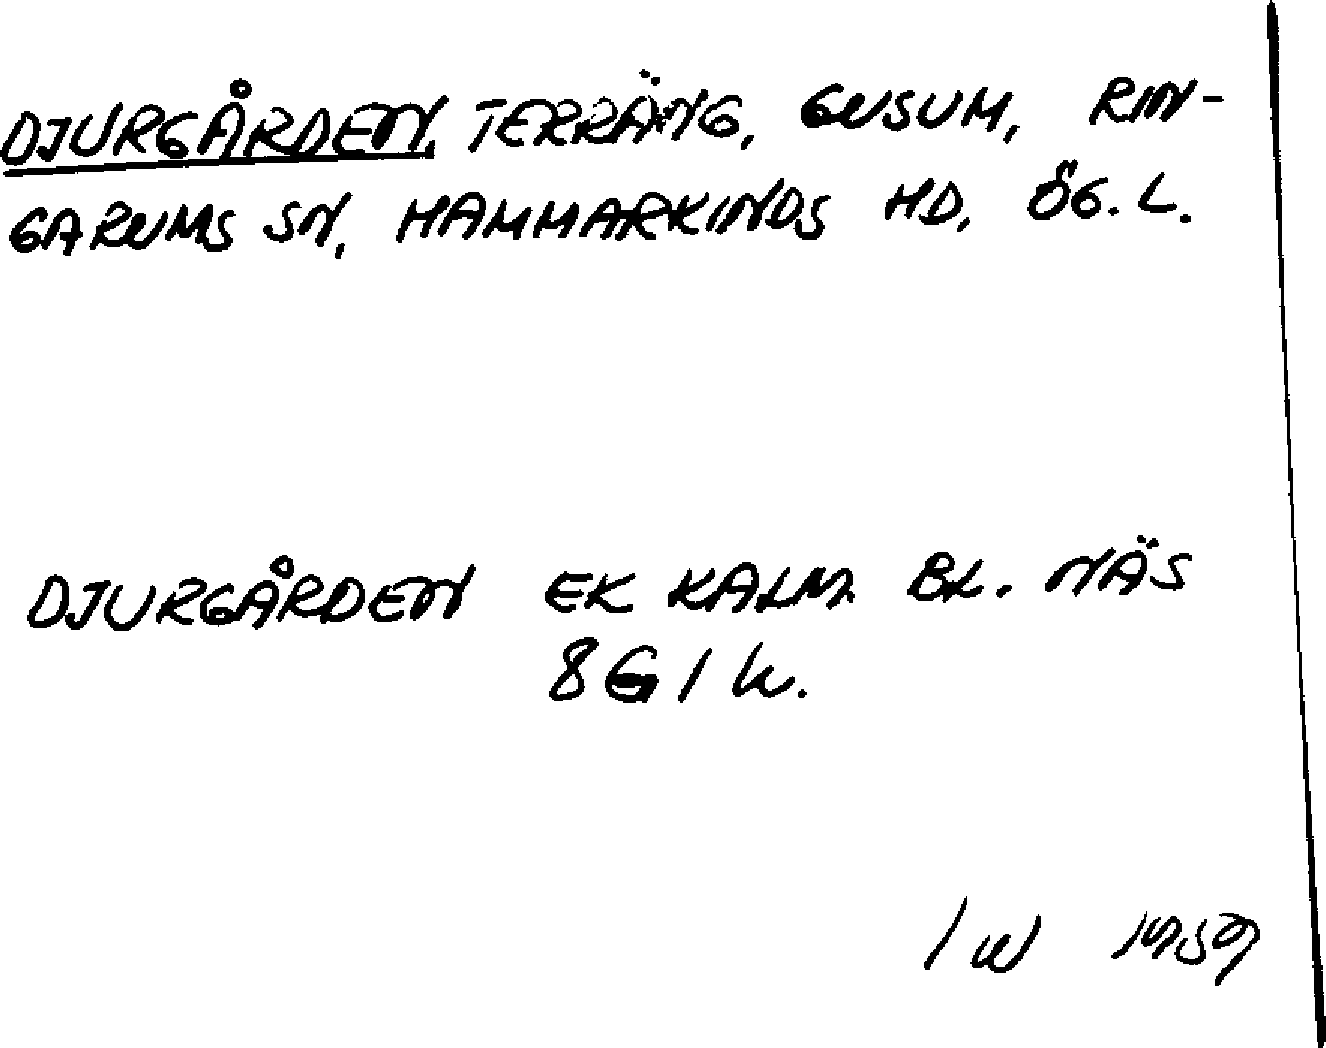 DJURGÅRDEN, TERRÄNG, GUSUM, RIN-
GARUMS SN, HAMMARKINDS HD, ÖG. L.
DJURGÅRDEN EK KALM. BL. NÄS
8G1k.
IW 1959